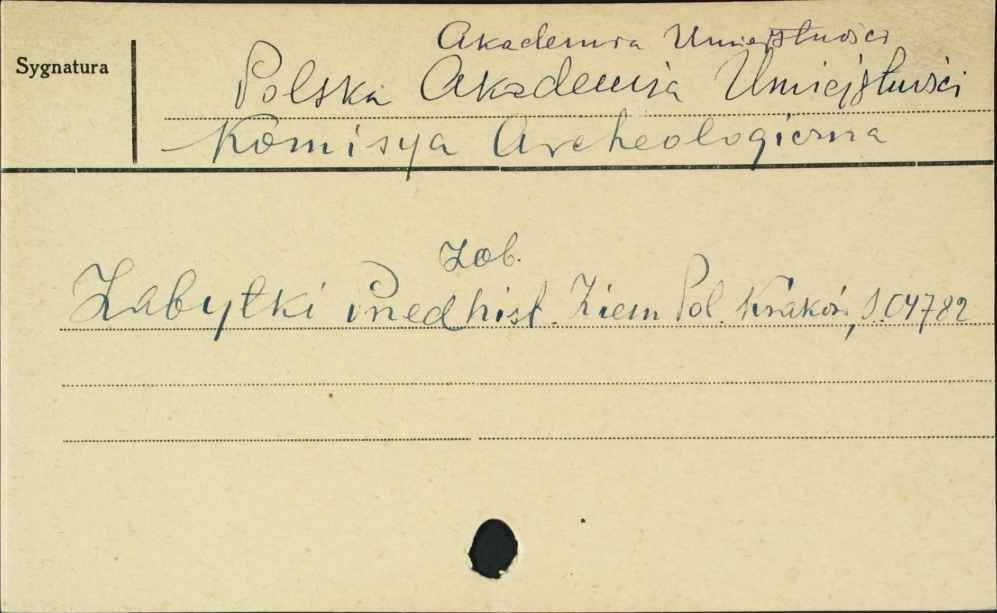 Akademia Umiejętności
Sygnatura
Polska Akademia Umiejętności
Komisya Archeologiczna
Zob.
Zabytki Przedhist. Ziem Pol. Kraków, S.04782